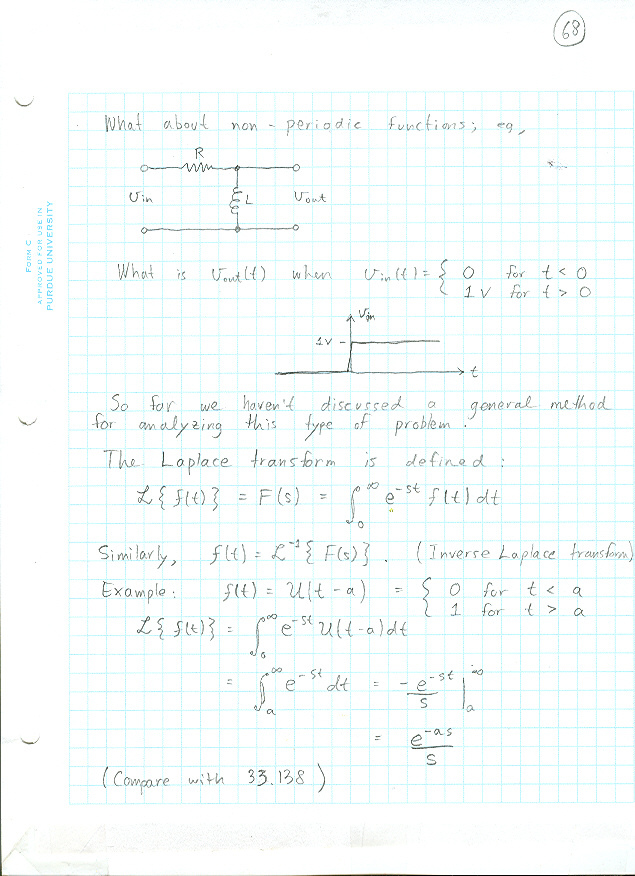 68
What about non-periodic functions; eg,
R
Vin
L
Vout
FORM C
APPROVED FOR USE IN
PURDUE UNIVERSITY
What is Vout(t) when Vin(t) = { 0 for t < 0
1 V for t > 0
Vin
1V
t
So far we haven't discussed a general method
for analyzing this type of problem.
The Laplace transform is defined:
ℒ{f(t)} = F(s) = ∫₀^∞ e^-st f(t) dt
Similarly, f(t) = ℒ^-1{F(s)}. (Inverse Laplace transform)
Example: f(t) = U(t-a) = { 0 for t < a
1 for t > a
ℒ{f(t)} = ∫₀^∞ e^-st U(t-a) dt
= ∫ₐ^∞ e^-st dt = -e^-st/s |ₐ^∞
= e^-as/s
(Compare with 33.138)